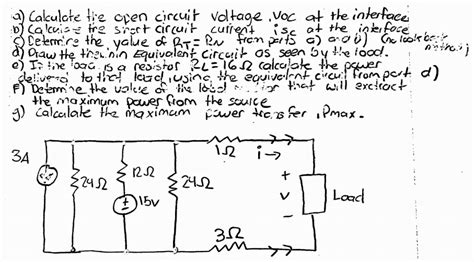 a) Calculate the open circuit voltage, Voc at the interface
b) Calculate the short circuit current isc at the interface
c) Determine the value of RT = RN from parts a) and b) (no look back method)
d) Draw the thevnin Equivalent Circuit as seen by the load.
e) If the load is a resistor RL=16Ω calculate the power
delivered to that load, using the equivalent circuit from part d)
F) Determine the value of the load that will exctract
the maximum power from the source
g) Calculate the maximum power transfer, Pmax.
1Ω
i→
3A
24Ω
12Ω
24Ω
15V
+
v
-
Load
3Ω